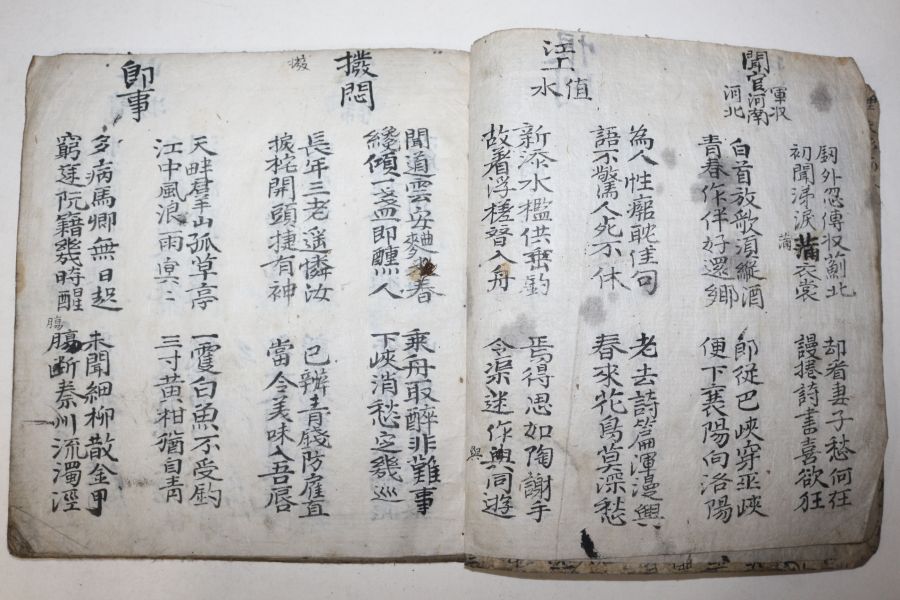 聞官軍収河南河北
釼外忽傳収薊北
初聞涕淚蒲衣裳
滿
却看妻子愁何在
謾捲詩書喜欲狂
白首放歌須縱酒
青春作伴好還鄉
即從巴峽穿巫峽
便下襄陽向洛陽
江上值水
為人性癖耽佳句
語不驚人死不休
老去詩篇渾漫興
春來花鳥莫深愁
新添水檻供垂釣
故着浮槎替入舟
焉得思如陶謝手
令渠迷作與同遊
與
撥悶
撥
聞道雲安麴米春
纔傾一盞即醺人
乘舟取醉非難事
下峽消愁定幾巡
長年三老遙憐汝
捩柁開頭捷有神
已辦青錢防雇直
當令美味入吾唇
即事
天畔群山孤草亭
江中風浪雨冥〻
一雙白魚不受釣
三寸黃柑猶自青
多病馬卿無日起
窮途阮籍幾時醒
未聞細柳散金甲
腸斷秦州流濁涇
腸